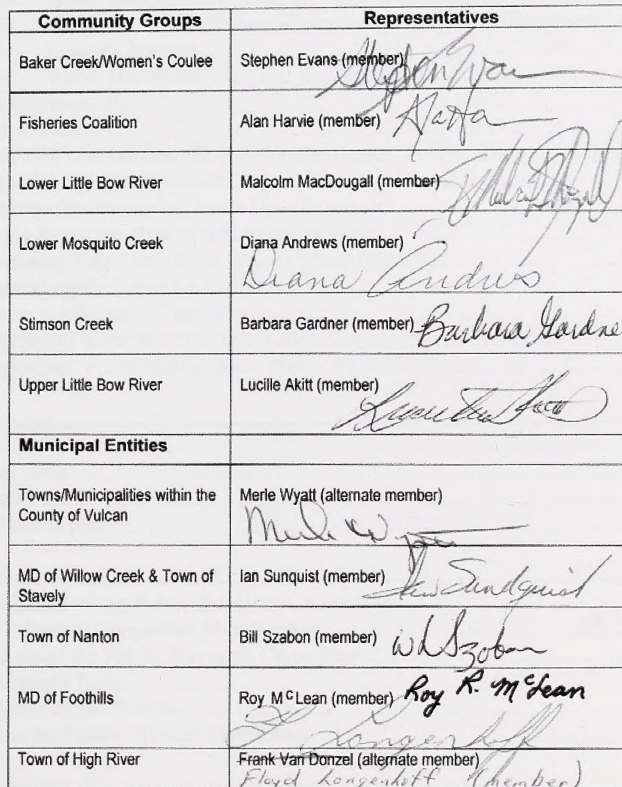 Community Groups Representatives
Baker Creek/Women's Coulee Stephen Evans (member)
Fisheries Coalition Alan Harvie (member)
Lower Little Bow River Malcolm MacDougall (member)
Lower Mosquito Creek Diana Andrews (member)
Diana Andrews
Stimson Creek Barbara Gardner (member) Barbara Gardne
Upper Little Bow River Lucille Akitt (member)
Municipal Entities
Towns/Municipalities within the Merle Wyatt (alternate member)
County of Vulcan
Merle Wyatt
MD of Willow Creek & Town of Ian Sunquist (member) Ian Sundquist
Stavely
Town of Nanton Bill Szabon (member) W L Szobon
MD of Foothills Roy McLean (member) Roy R. McLean
F Longenhoff
Town of High River Frank Van Donzel (alternate member)
Floyd Longenhoff (member)